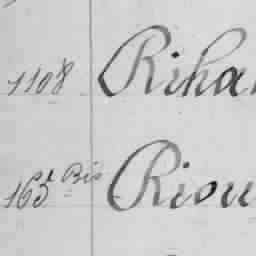 1108 Riha
165 Bis Riou